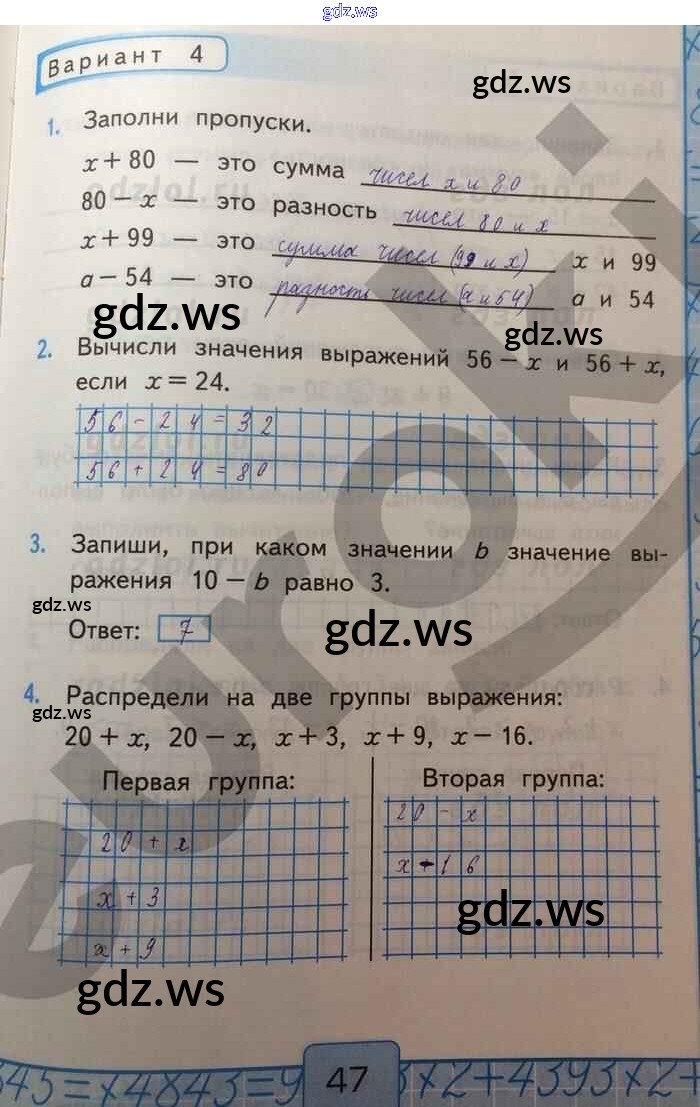 gdz.ws
Вариант 4
gdz.ws
1. Заполни пропуски.
x + 80 — это сумма чисел x и 80
80 − x — это разность чисел 80 и x
x + 99 — это сумма чисел (99 и x) x и 99
a − 54 — это разность чисел (a и 54) a и 54
gdz.ws
2. Вычисли значения выражений 56 − x и 56 + x,
если x = 24.
56 − 24 = 32
56 + 24 = 80
3. Запиши, при каком значении b значение вы-
ражения 10 − b равно 3.
gdz.ws
Ответ: 7
gdz.ws
4. Распредели на две группы выражения:
gdz.ws
20 + x, 20 − x, x + 3, x + 9, x − 16.
Первая группа: Вторая группа:
20 + x 20 − x
x + 3 x − 16
x + 9
gdz.ws
gdz.ws
euroki
345=×4843=9 47 3×2+4393×2+